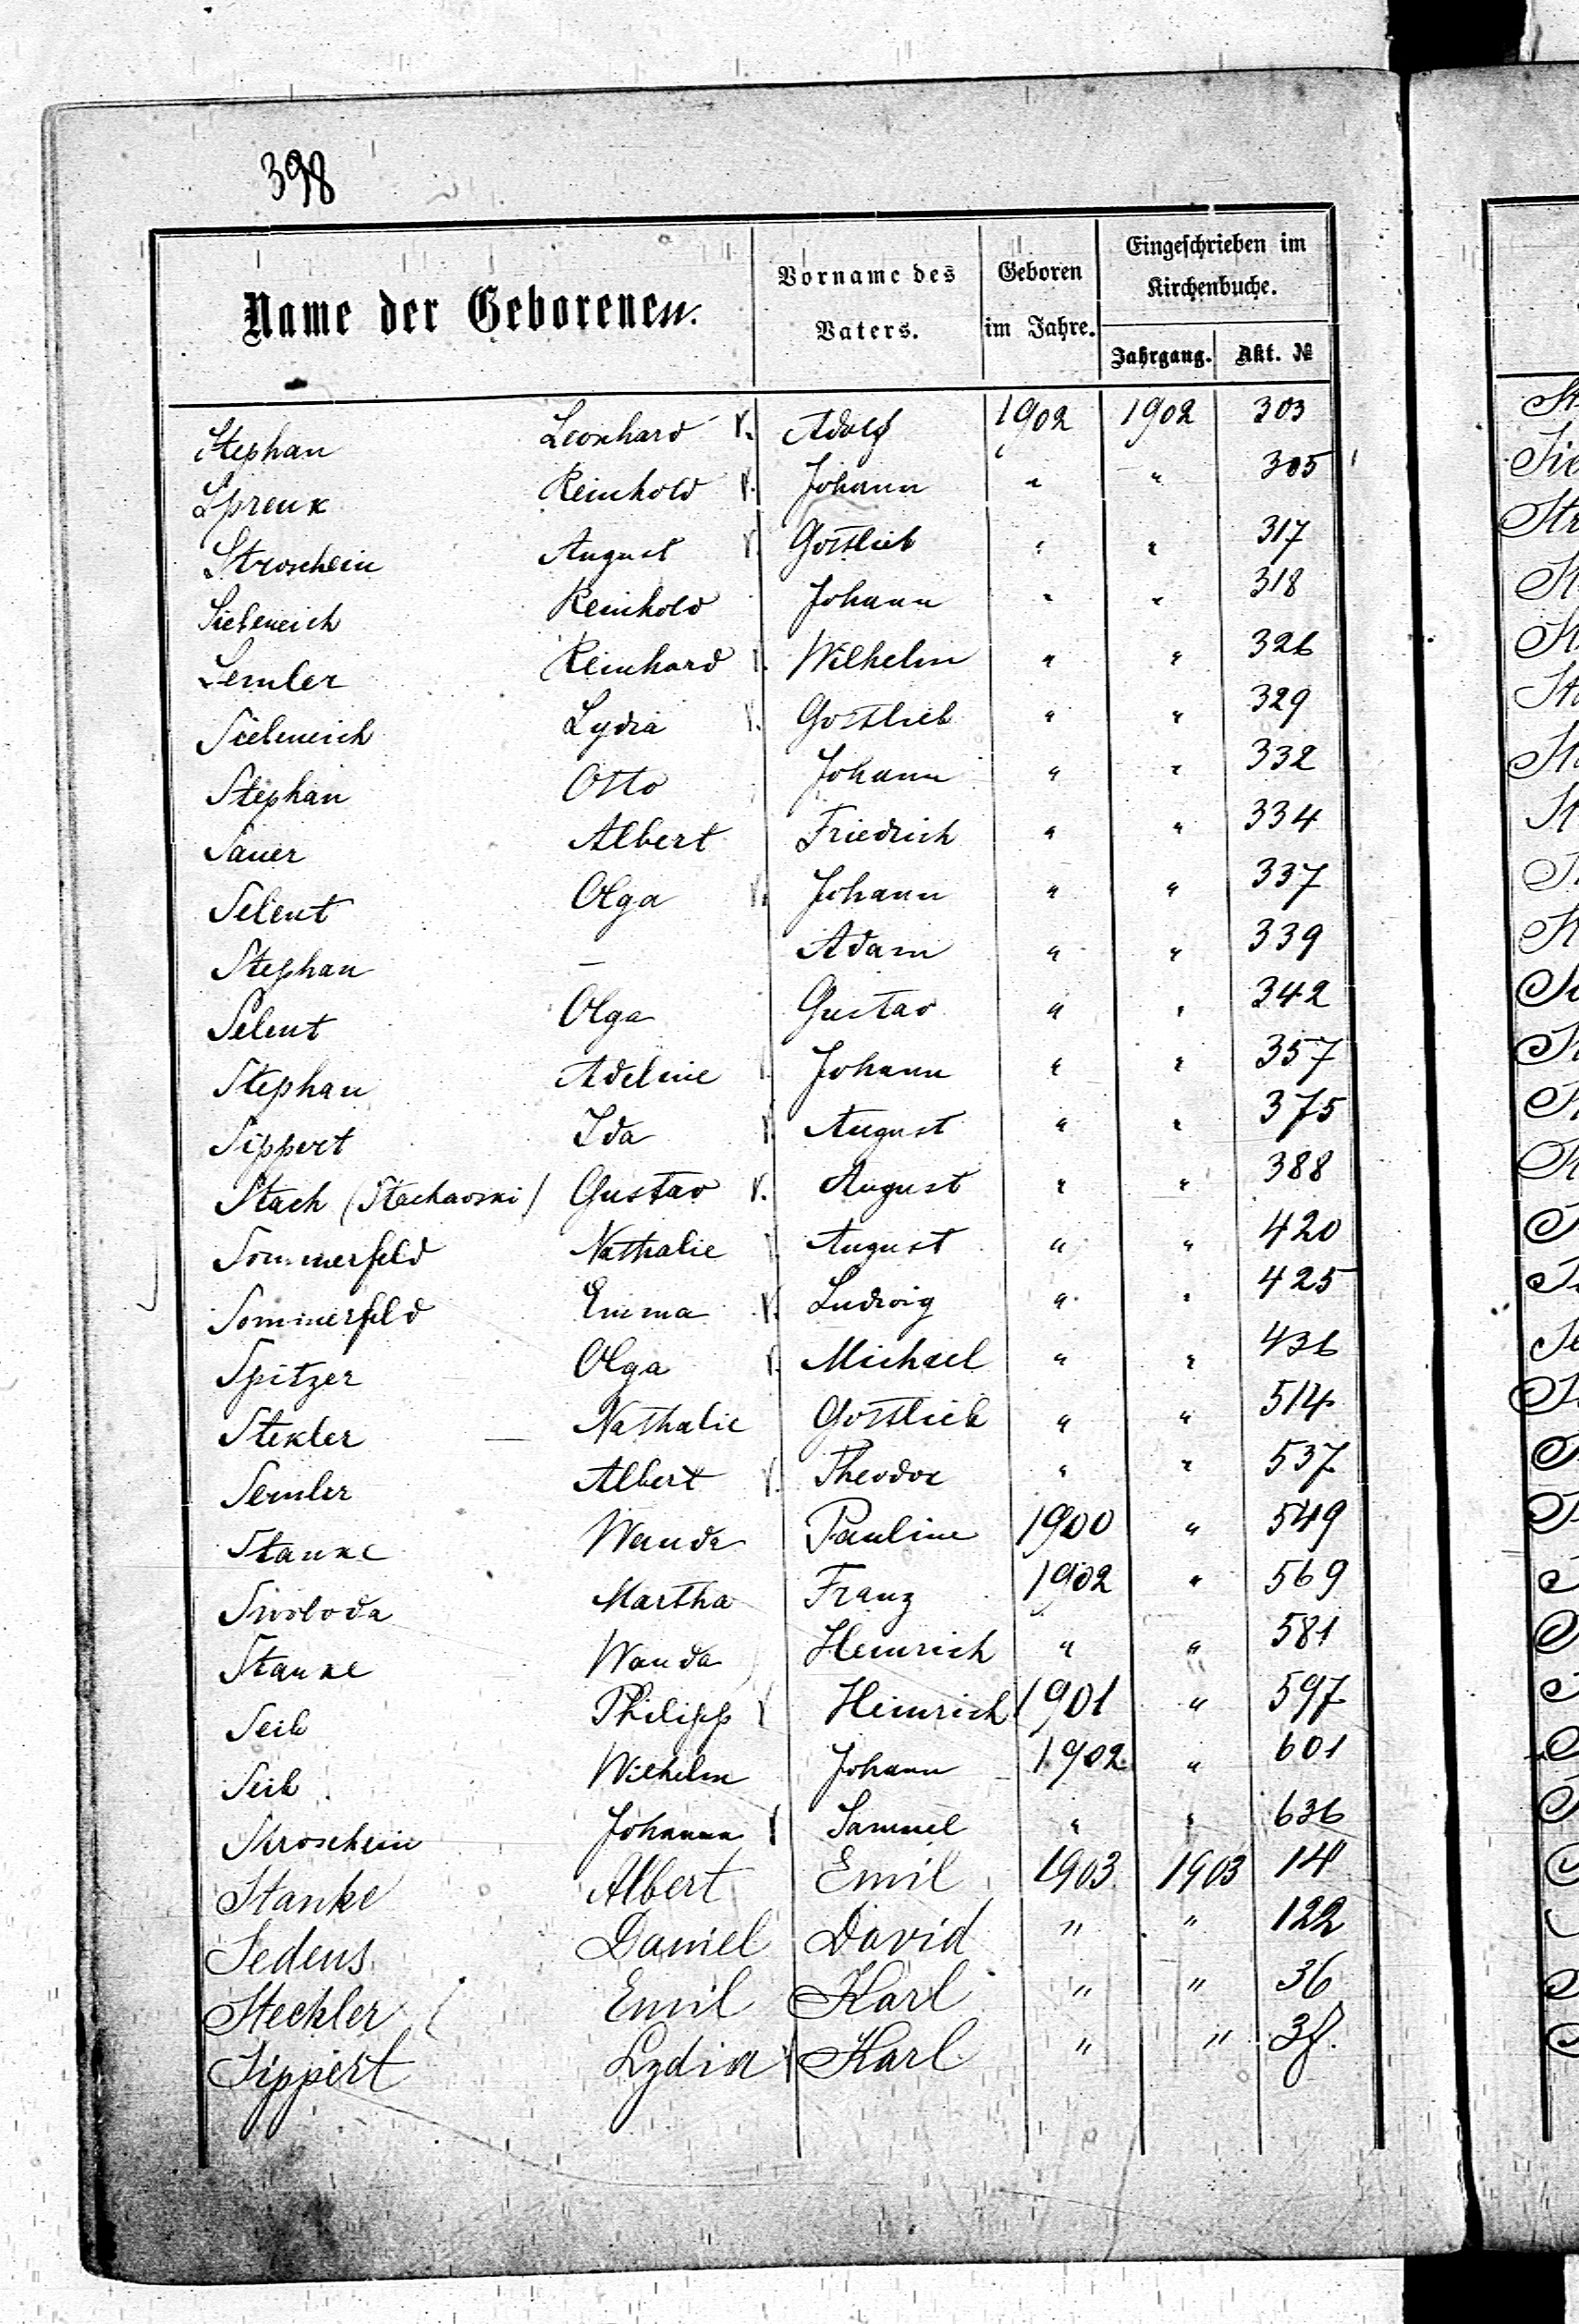 398
Name der Geborenen. Vorname des Vaters. Geboren im Jahre. Eingeschrieben im Kirchenbuche.
Jahrgang. Akt. №
Stephan Leonhard V. Adolf 1902 1902 303
Sprenk Reinhold V. Johann " " 305
Stroschein August V. Gottlieb " " 317
Siebeneich Reinhold Johann " " 318
Semler Reinhard V. Wilhelm " " 326
Siebeneich Lydia V. Gottlieb " " 329
Stephan Otto Johann " " 332
Sauer Albert Friedrich " " 334
Selent Olga V. Johann " " 337
Stephan — Adam " " 339
Selent Olga Gustav " " 342
Stephan Adeline Johann " " 357
Sippert Ida V. August " " 375
Stach (Stachavski) Gustav V. August " " 388
Sommerfeld Nathalie V. August " " 420
Sommerfeld Emma V. Ludwig " " 425
Spitzer Olga V. Michael " " 436
Stekler — Nathalie Gottlieb " " 514
Semler Albert V. Theodor " " 537
Stanke Wanda Pauline 1900 " 549
Swoboda Martha Franz 1902 " 569
Stanke Wanda Heinrich " " 581
Seib Philipp V Heinrich 1901 " 597
Seib Wilhelm Johann 1902 " 601
Stroschein Johanna V Samuel " " 636
Stanke Albert Emil 1903 1903 14
Sedens Daniel David " " 122
Steckler Emil Karl " " 36
Sippert Lydia V Karl " "